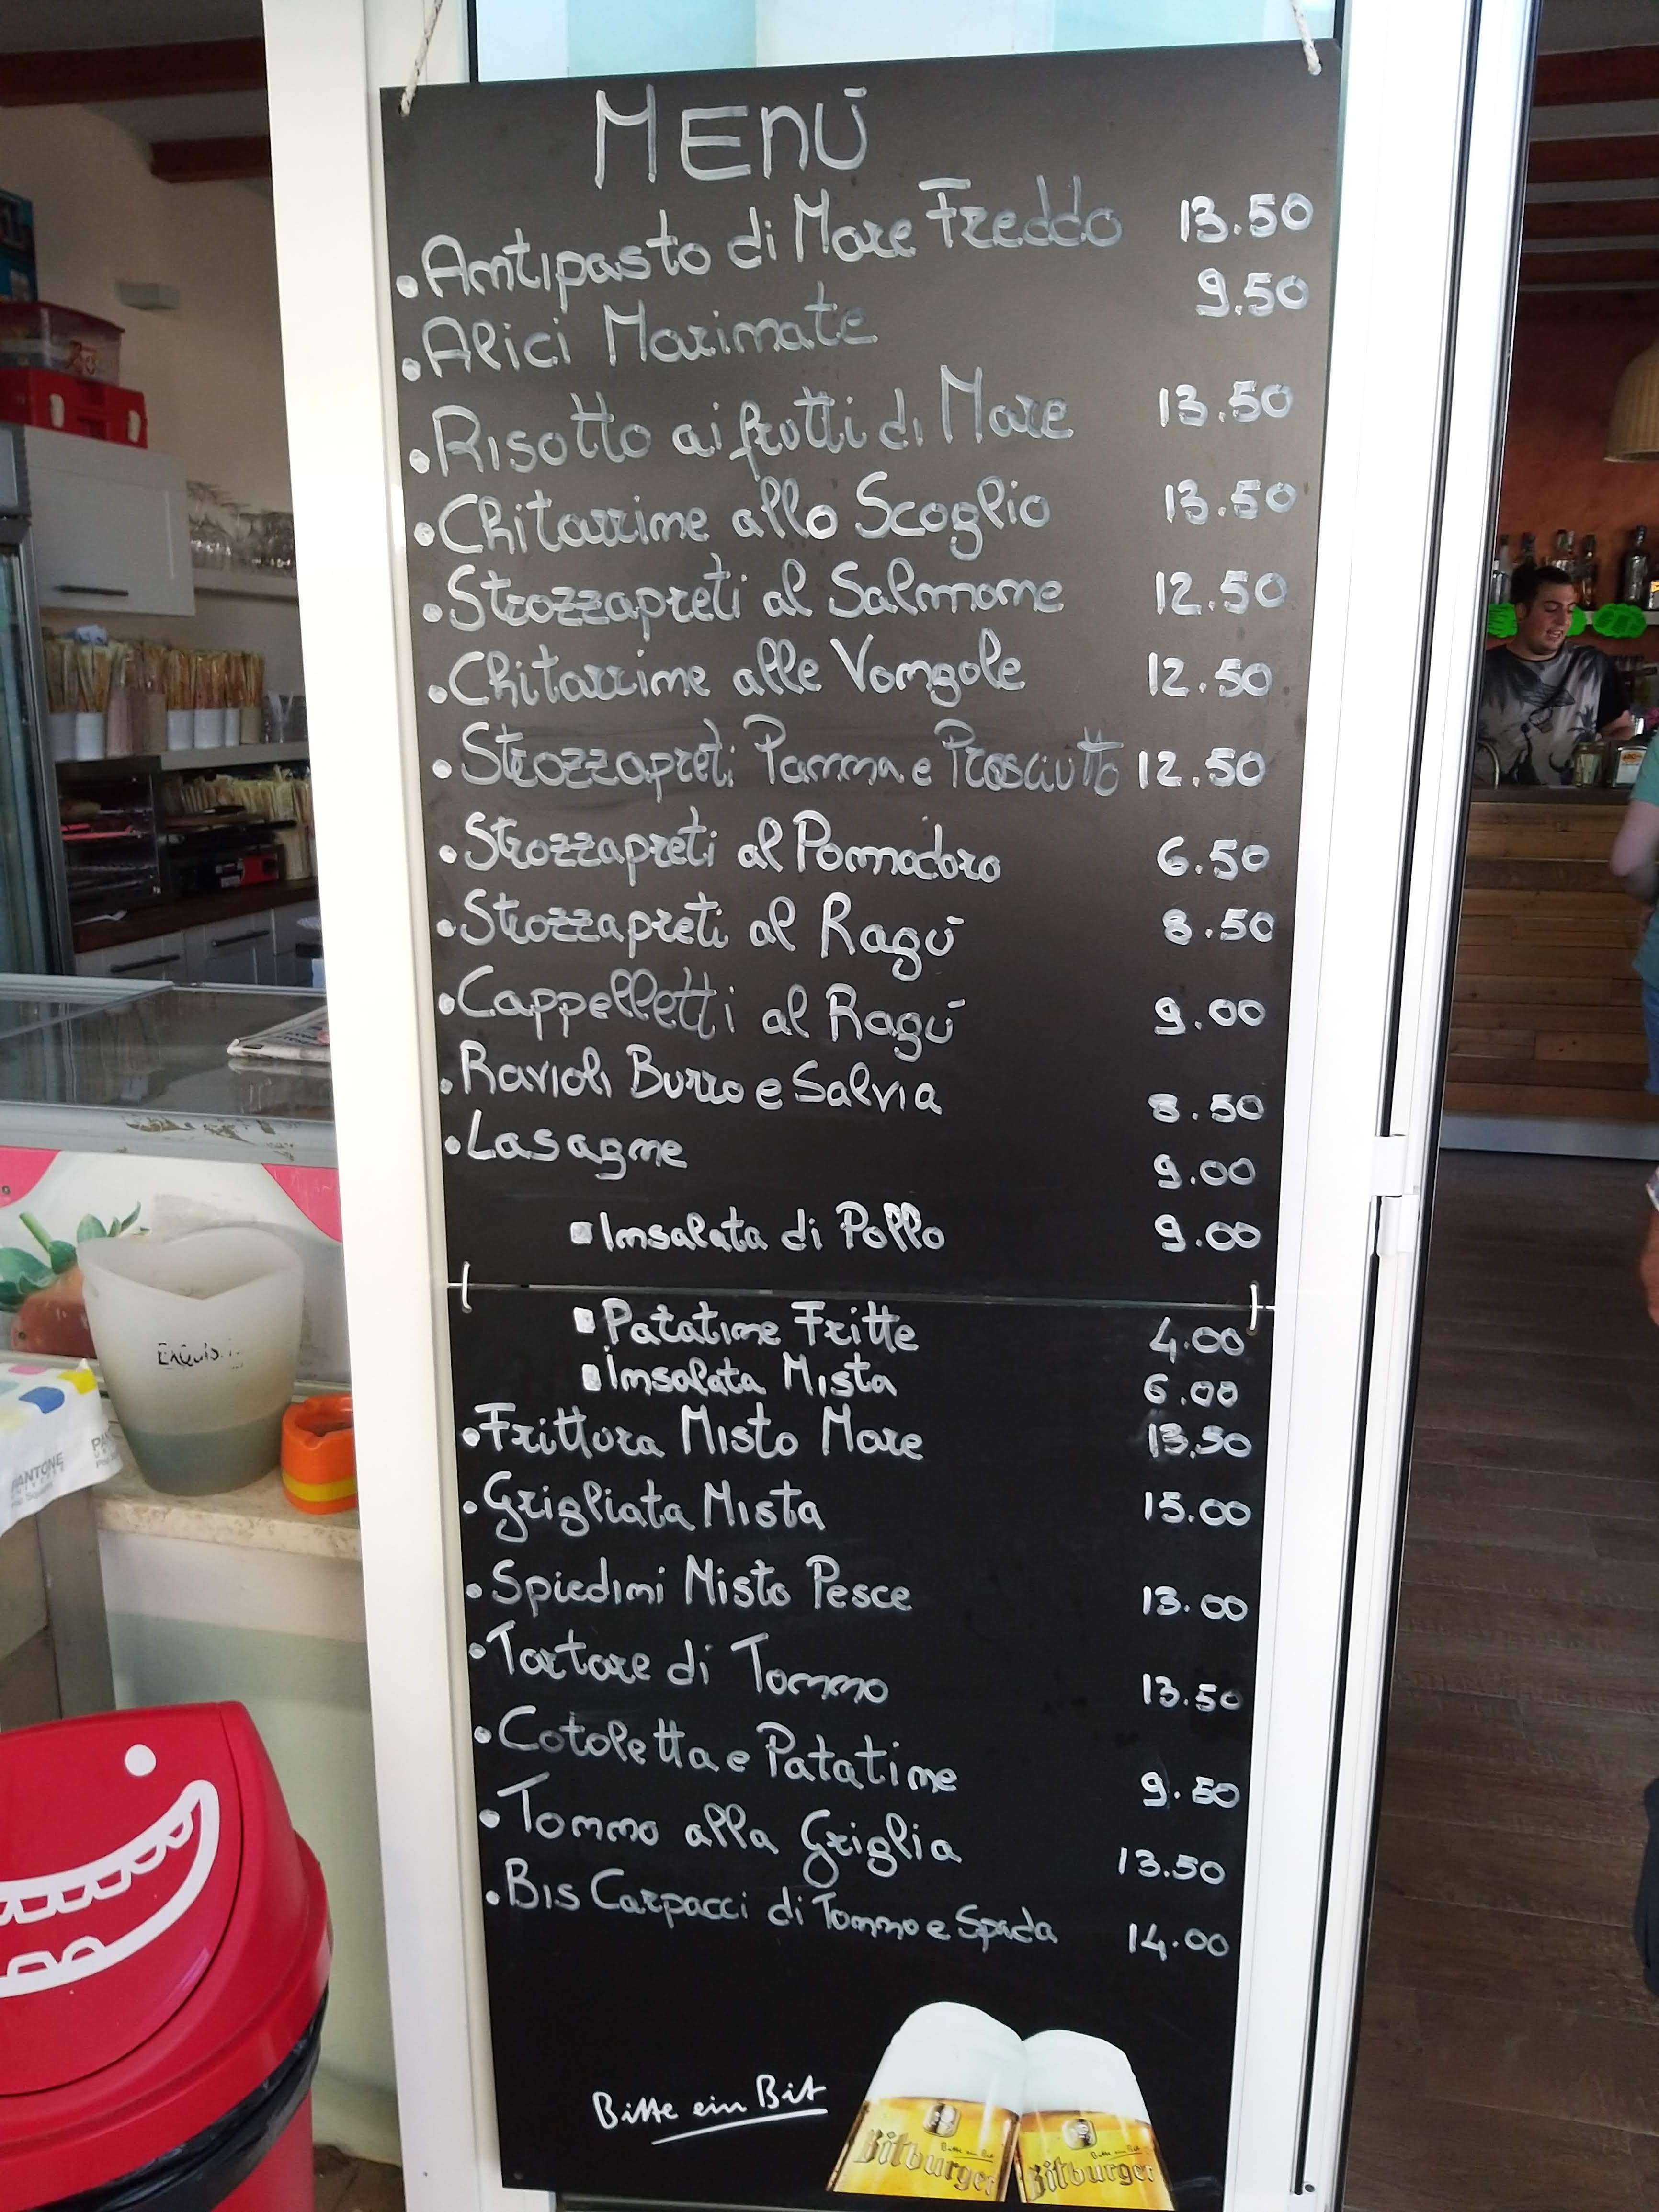 MENÚ
Antipasto di Mare Freddo 13.50
Alici Marinate 9.50
Risotto ai frutti di Mare 13.50
Chitarrine allo Scoglio 13.50
Strozzapreti al Salmone 12.50
Chitarrine alle Vongole 12.50
Strozzapreti Panna e Prosciutto 12.50
Strozzapreti al Pomodoro 6.50
Strozzapreti al Ragú 8.50
Cappelletti al Ragú 9.00
Ravioli Burro e Salvia 8.50
Lasagne 9.00
Insalata di Pollo 9.00
Patatine Fritte 4.00
Insalata Mista 6.00
Frittura Misto Mare 13.50
Grigliata Mista 15.00
Spiedini Misto Pesce 13.00
Tartare di Tonno 13.50
Cotoletta e Patatine 9.50
Tonno alla Griglia 13.50
Bis Carpacci di Tonno e Spada 14.00
Bitte ein Bit
Bitburger
Bitburger
PANTONE